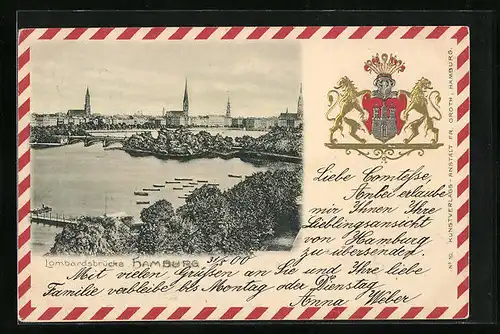 Liebe Comtesse,
Anbei erlaube
mir Ihnen Ihre
Lieblingsansicht
von Hamburg
zu übersenden.
Lombardsbrücke HAMBURG 3/5 00
Mit vielen Grüßen an Sie und Ihre liebe
Familie verbleibe bis Montag oder Dienstag
Anna Weber
No 10. KUNSTVERLAGS-ANSTALT FR. GROTH, HAMBURG.